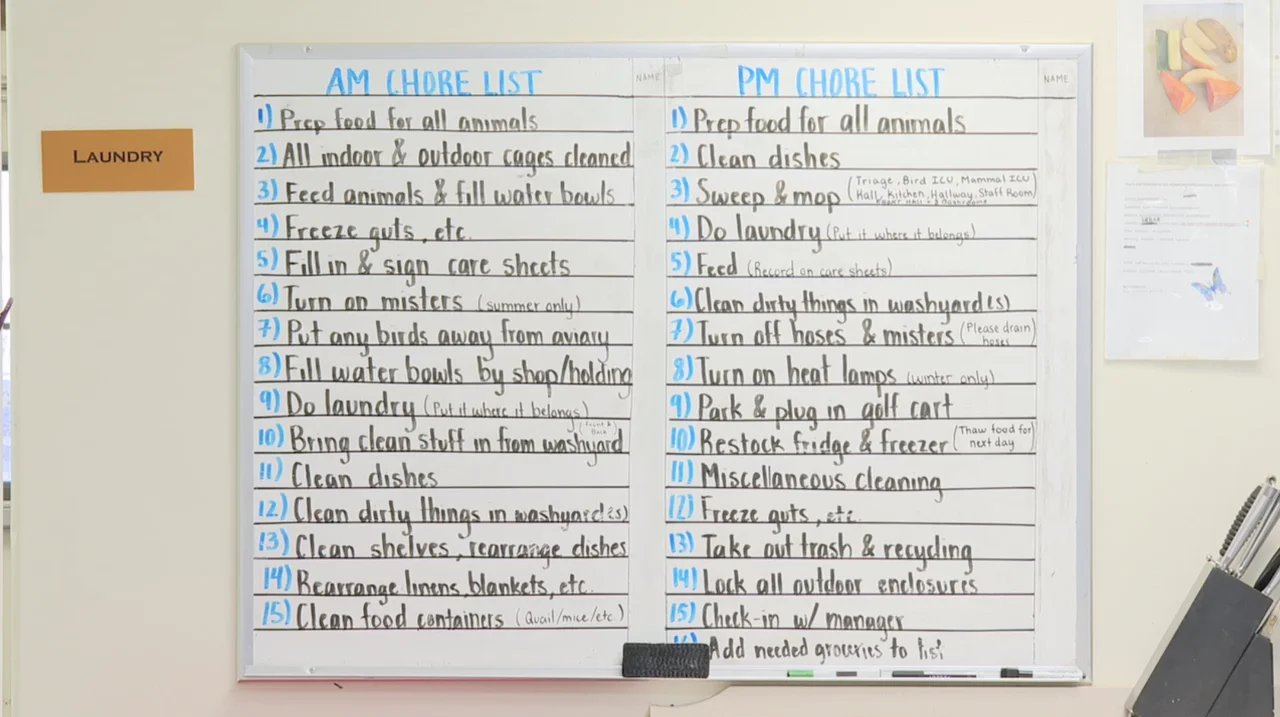 LAUNDRY
AM CHORE LIST
NAME
1) Prep food for all animals
2) All indoor & outdoor cages cleaned
3) Feed animals & fill water bowls
4) Freeze guts, etc.
5) Fill in & sign care sheets
6) Turn on misters (summer only)
7) Put any birds away from aviary
8) Fill water bowls by shop/holding
9) Do laundry (Put it where it belongs)
10) Bring clean stuff in from washyard (Front & Back)
11) Clean dishes
12) Clean dirty things in washyard(s)
13) Clean shelves, rearrange dishes
14) Rearrange linens, blankets, etc.
15) Clean food containers (Quail/mice/etc)
PM CHORE LIST
NAME
1) Prep food for all animals
2) Clean dishes
3) Sweep & mop (Triage, Bird ICU, Mammal ICU
Hall, Kitchen, Hallway, Staff Room)
4) Do laundry (Put it where it belongs)
5) Feed (Record on care sheets)
6) Clean dirty things in washyard(s)
7) Turn off hoses & misters (Please drain
hoses)
8) Turn on heat lamps (winter only)
9) Park & plug in golf cart
10) Restock fridge & freezer (Thaw food for
next day)
11) Miscellaneous cleaning
12) Freeze guts, etc.
13) Take out trash & recycling
14) Lock all outdoor enclosures
15) Check-in w/ manager
16) Add needed groceries to list